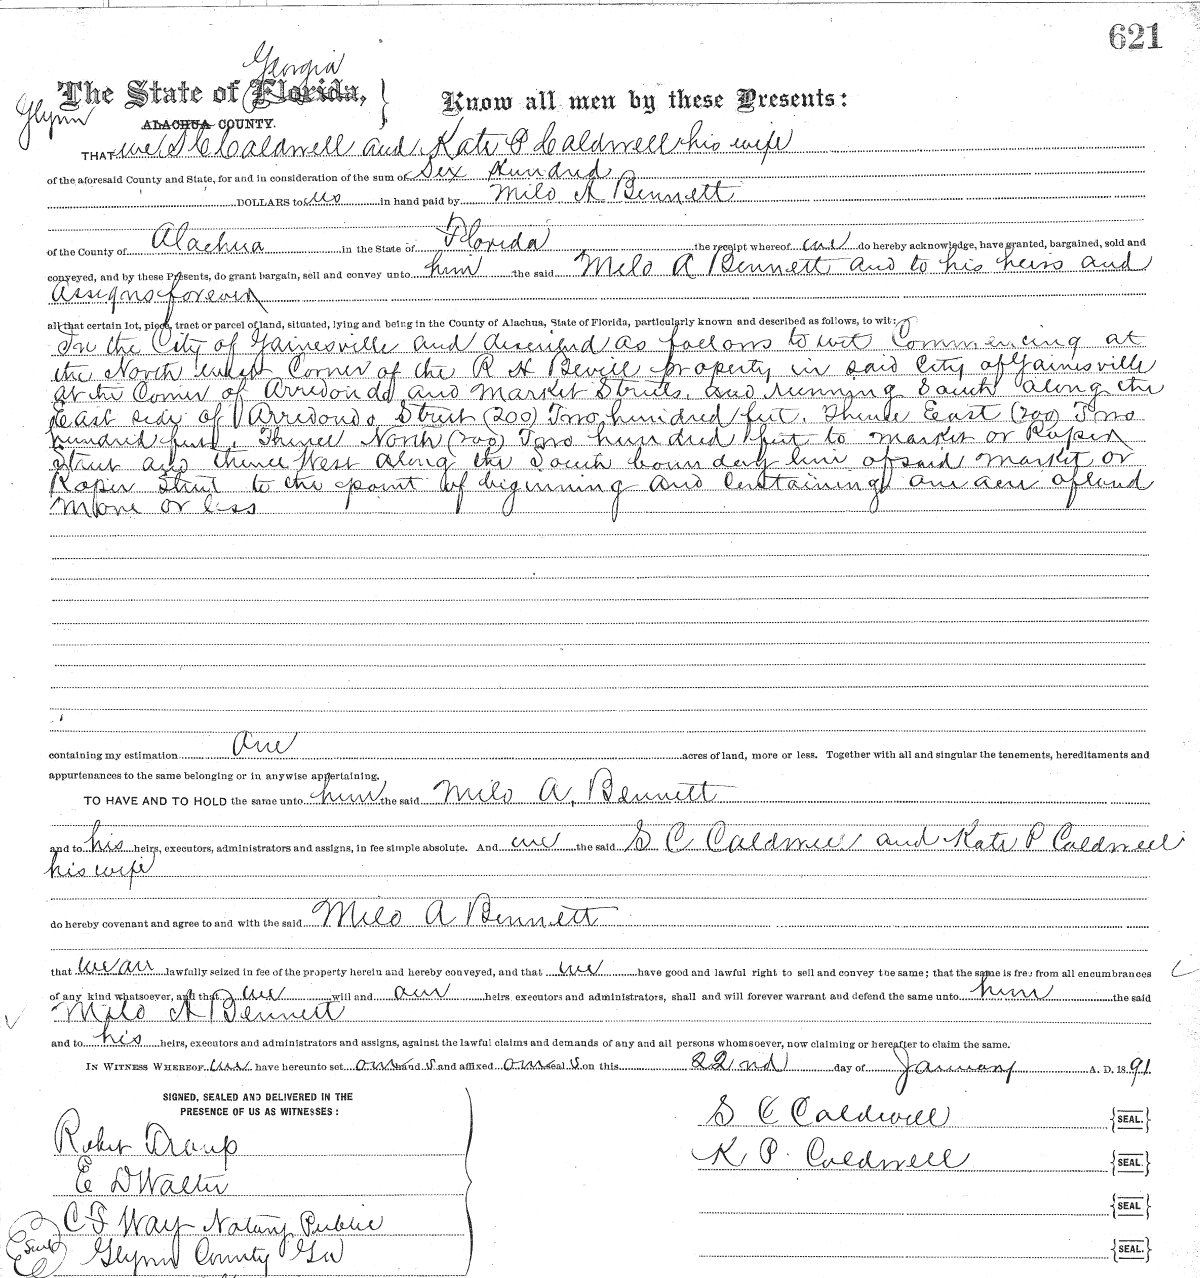 621
Georgia
The State of Florida,
Glynn
ALACHUA COUNTY.
Know all men by these Presents:
THAT we S C Caldwell and Kate P Caldwell his wife
of the aforesaid County and State, for and in consideration of the sum of Six Hundred
DOLLARS to us in hand paid by Milo A Bennett
of the County of Alachua in the State of Florida the receipt whereof we do hereby acknowledge, have granted, bargained, sold and
conveyed, and by these Presents, do grant bargain, sell and convey unto him the said Milo A Bennett and to his heirs and
assigns forever
all that certain lot, piece, tract or parcel of land, situated, lying and being in the County of Alachua, State of Florida, particularly known and described as follows, to wit:
In the City of Gainesville and described as follows to wit Commencing at
the North west Corner of the R H Bevill property in said City of Gainesville
at the Corner of Arredondo and Market Streets, and running South along the
East side of Arredondo Street (200) Two hundred feet. Thence East (200) Two
hundred feet, Thence North (200) Two hundred feet to Market or Roper
Street and thence West along the South boundary line of said Market or
Roper Street to the point of beginning and Containing one acre of land
more or less
containing my estimation One acres of land, more or less. Together with all and singular the tenements, hereditaments and
appurtenances to the same belonging or in anywise appertaining.
TO HAVE AND TO HOLD the same unto him the said Milo A. Bennett
and to his heirs, executors, administrators and assigns, in fee simple absolute. And we the said S C Caldwell and Kate P Caldwell
his wife
do hereby covenant and agree to and with the said Milo A Bennett
that we are lawfully seized in fee of the property herein and hereby conveyed, and that we have good and lawful right to sell and convey the same; that the same is free from all encumbrances
of any kind whatsoever, and that we will and our heirs executors and administrators, shall and will forever warrant and defend the same unto him the said
Milo A Bennett
and to his heirs, executors and administrators and assigns, against the lawful claims and demands of any and all persons whomsoever, now claiming or hereafter to claim the same.
IN WITNESS WHEREOF we have hereunto set our hand s and affixed our seal s on this 22nd day of January A. D. 1891
SIGNED, SEALED AND DELIVERED IN THE
PRESENCE OF US AS WITNESSES:
S C Caldwell {SEAL.}
K P. Caldwell {SEAL.}
{SEAL}
{SEAL.}
E D Walter
C F Way Notary Public
Seal Glynn County Ga